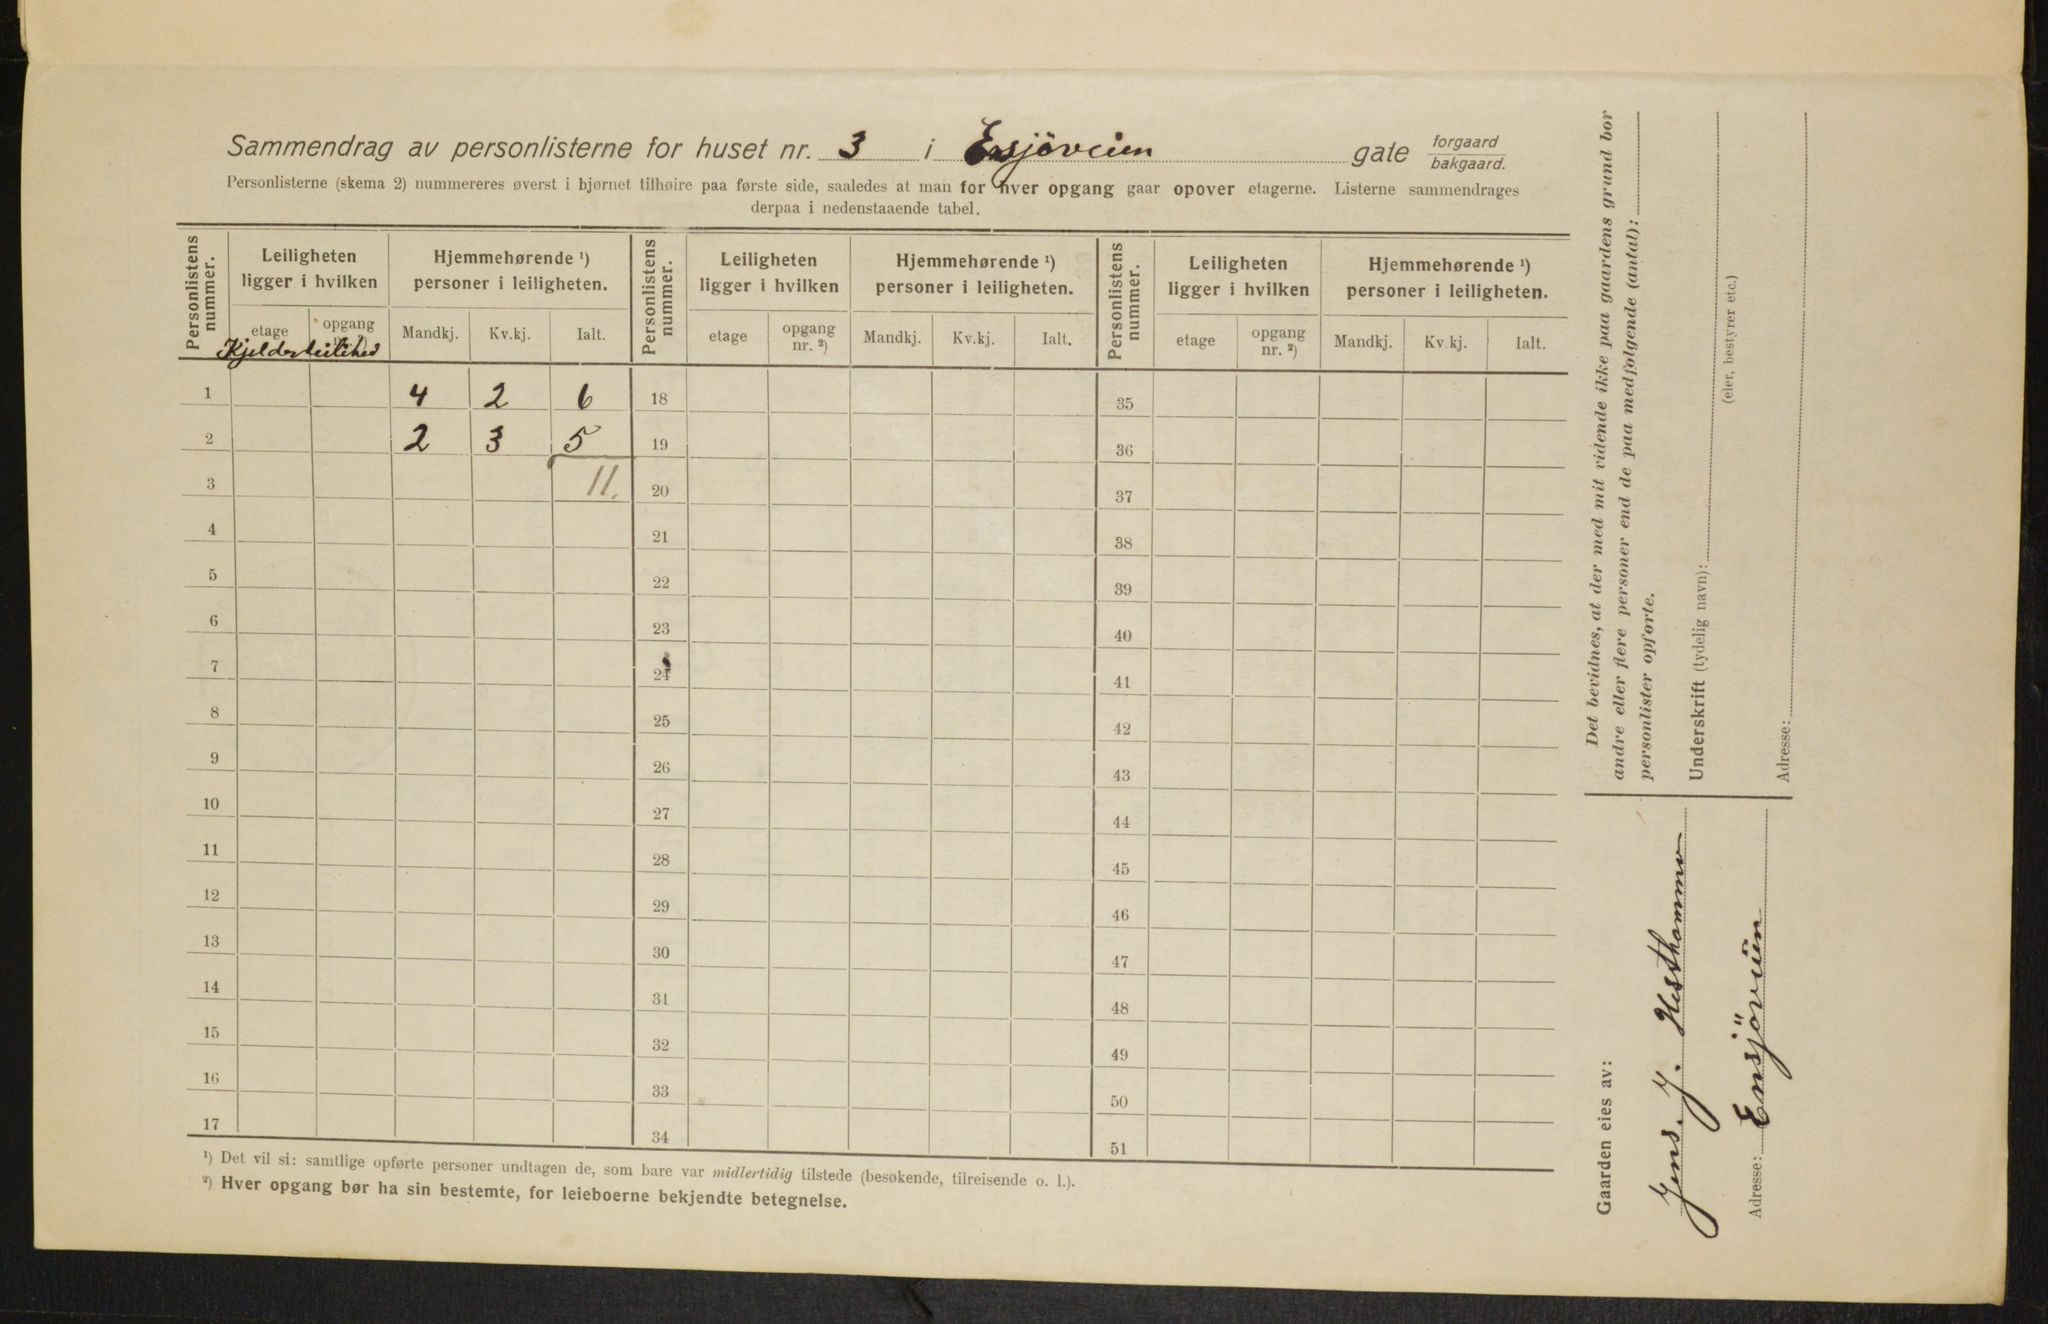 Sammendrag av personlisterne for huset nr. 3 i Ensjöveien gate forgaard bakgaard.
Personlisterne (skema 2) nummereres øverst i bjørnet tilhøire paa første side, saaledes at man for hver opgang gaar opover etagerne. Listerne sammendrages
derpaa i nedenstaaende tabel.
Personlistens nummer. Leiligheten ligger i hvilken Hjemmehørende ¹) personer i leiligheten. Personlistens nummer. Leiligheten ligger i hvilken Hjemmehørende ¹) personer i leiligheten. Personlistens nummer. Leiligheten ligger i hvilken Hjemmehørende ¹) personer i leiligheten.
etage opgang Mandkj. Kv.kj. Ialt. etage opgang nr. ²) Mandkj. Kv.kj. Ialt. etage opgang nr. ²) Mandkj. Kv.kj. Ialt.
Kjelderleilihed
1 4 2 6 18 35
2 2 3 5 19 36
3 11. 20 37
4 21 38
5 22 39
6 23 40
7 24 41
8 25 42
9 26 43
10 27 44
11 28 45
12 29 46
13 30 47
14 31 48
15 32 49
16 33 50
17 34 51
¹) Det vil si: samtlige opførte personer undtagen de, som bare var midlertidig tilstede (besøkende, tilreisende o. l.).
²) Hver opgang bør ha sin bestemte, for leieboerne bekjendte betegnelse.
Det bevidnes, at der med mit vidende ikke paa gaardens grund bor
andre eller flere personer end de paa medfølgende (antal):
personlister opførte.
Underskrift (tydelig navn):
(eier, bestyrer etc.)
Adresse:
Gaarden eies av:
Jens. J. Hesthammer
Adresse: Ensjöveien